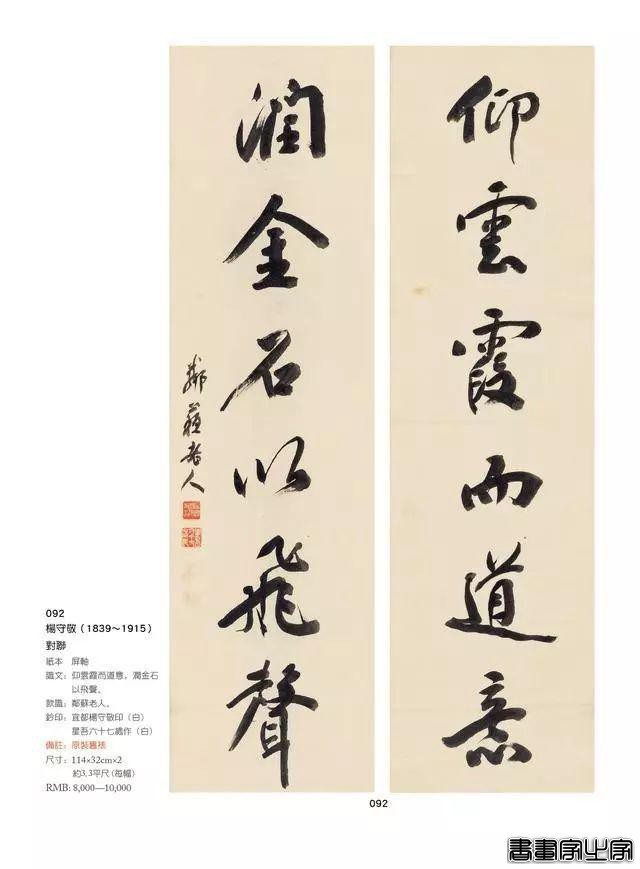 仰雲霞而道意
潤金石以飛聲
鄰蘇老人
092
楊守敬（1839～1915）
對聯
紙本　屏軸
識文：仰雲霞而道意，潤金石
以飛聲。
款識：鄰蘇老人。
鈐印：宜都楊守敬印（白）
星吾六十七歲作（白）
備註：原裝舊裱
尺寸：114×32cm×2
約3.3平尺（每幅）
RMB: 8,000—10,000
092
書畫家出字